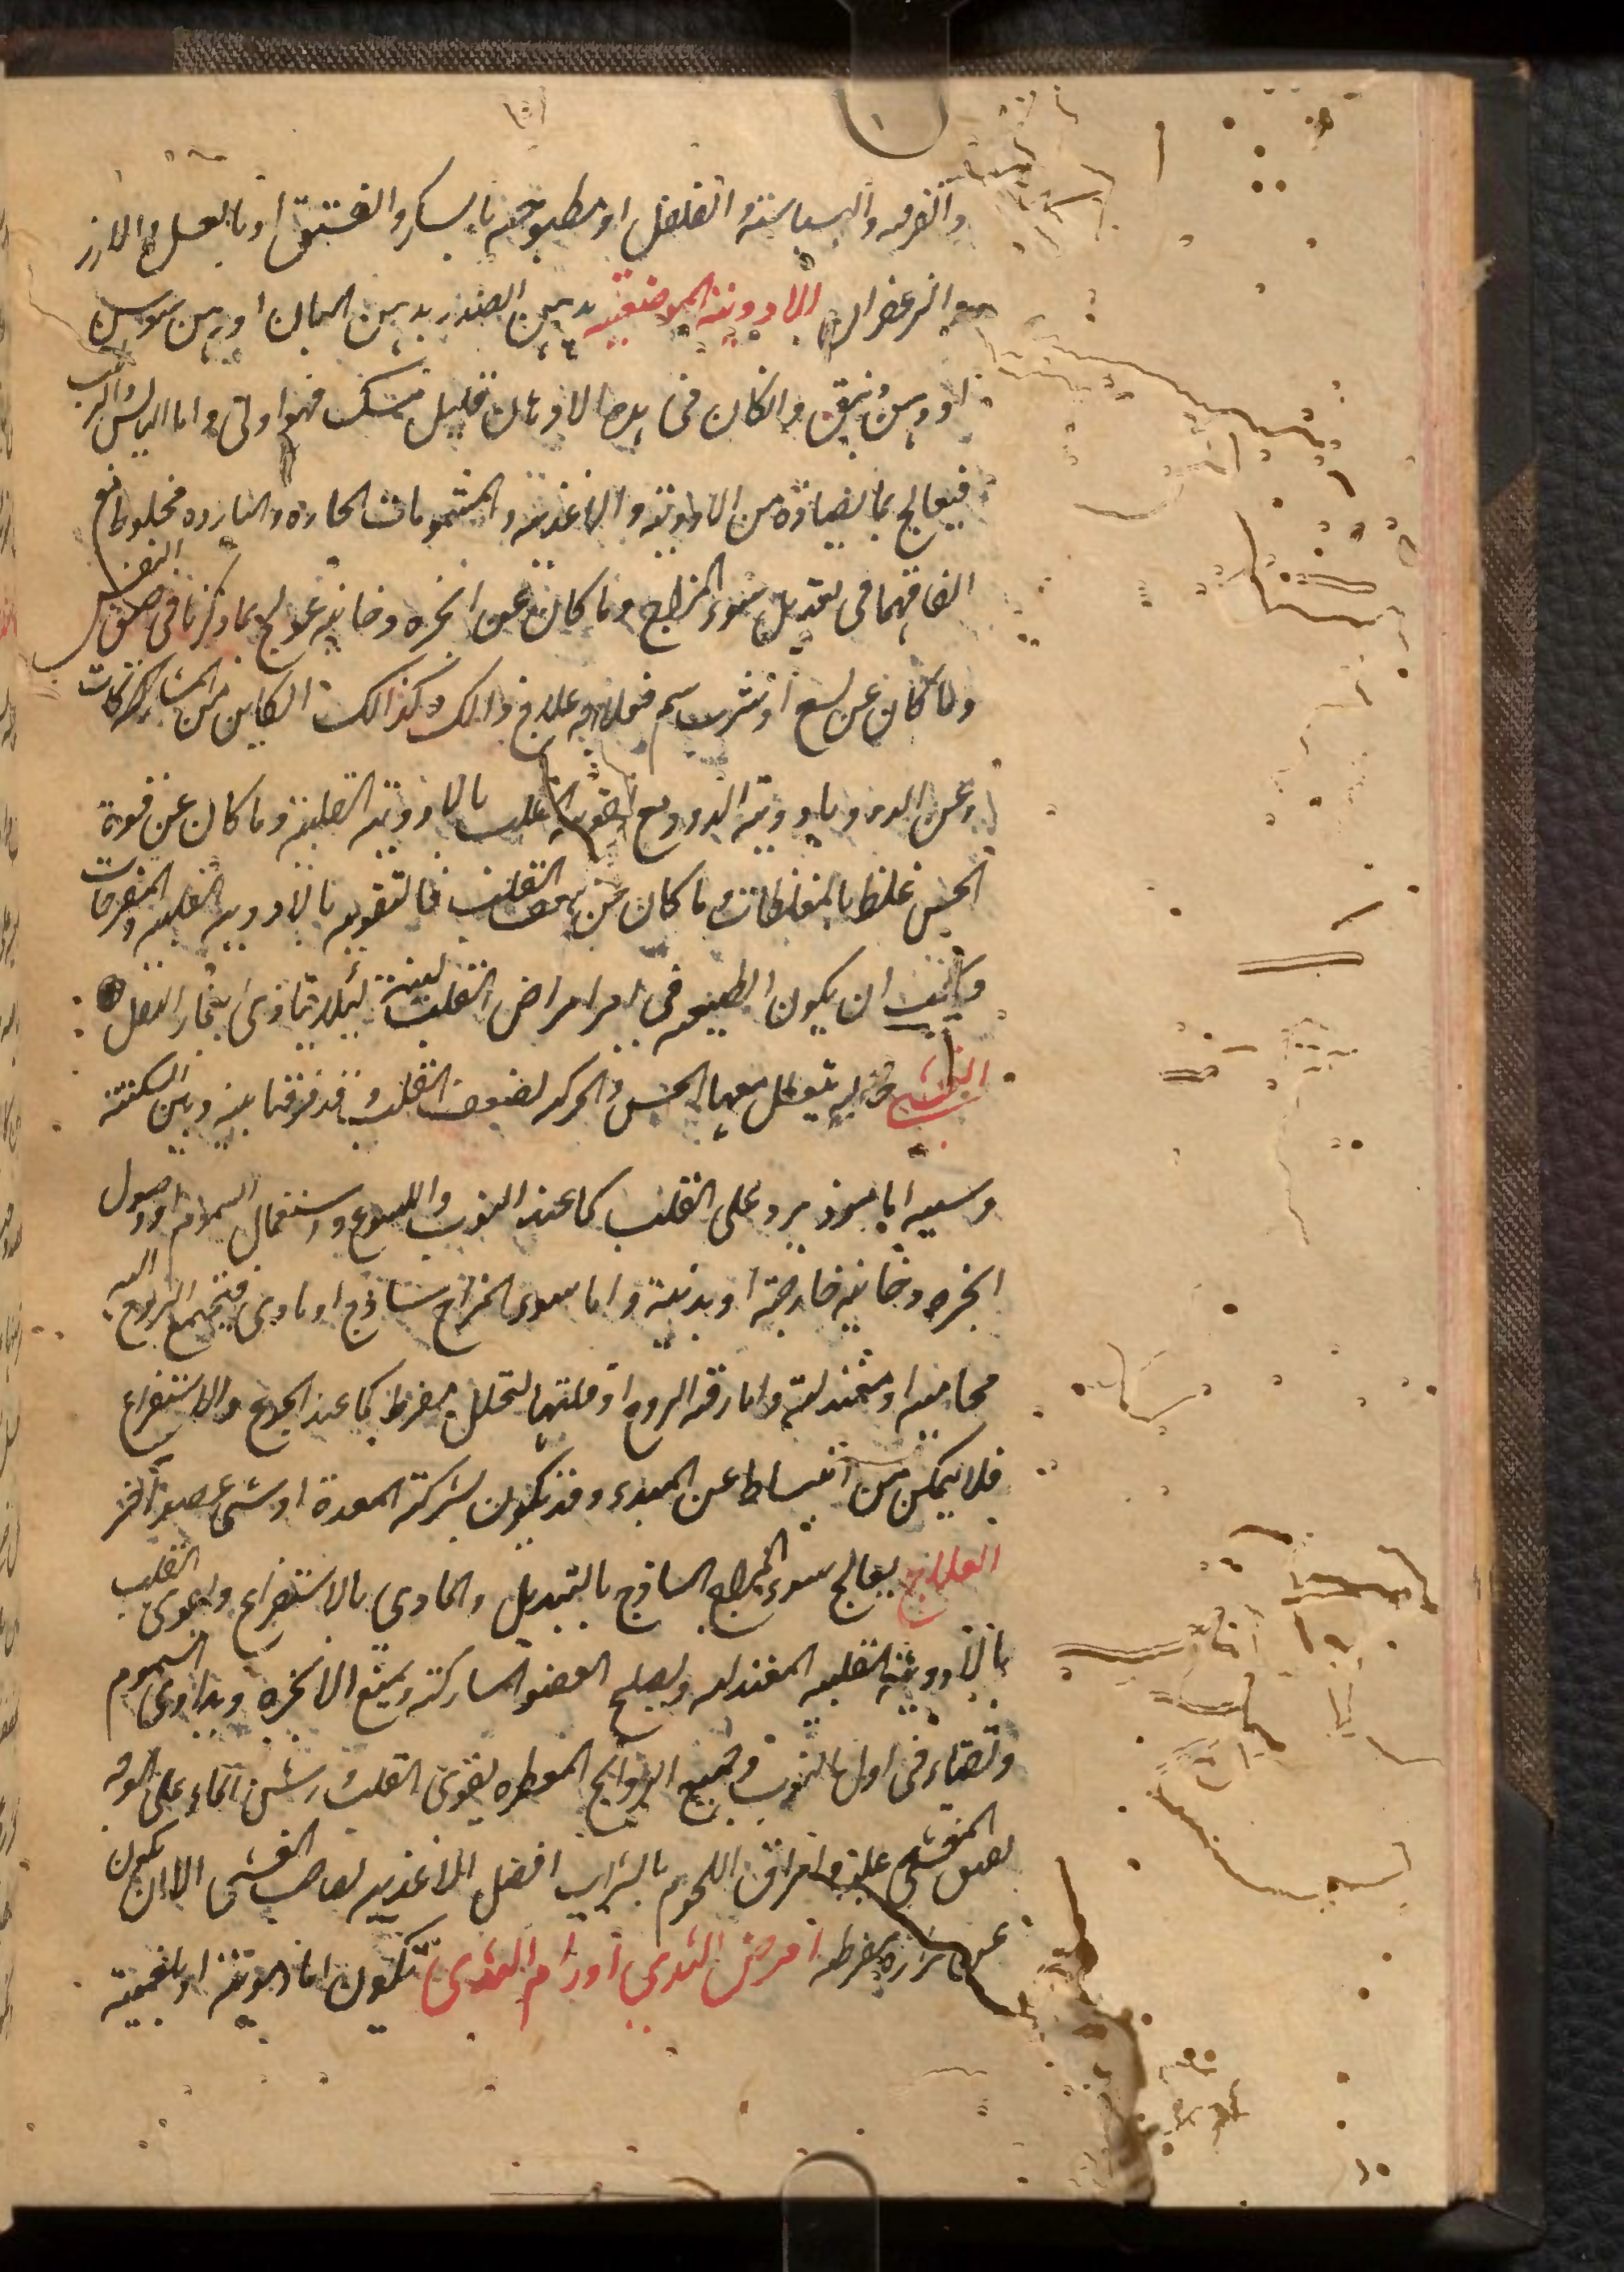 والقرفه والبسباسته الفلفل او مطبوخه بالسكر والفستق او بالعسل والارز
والزعفران الادويته الموضعيته يدهن الصدر بدهن البان او دهن سوسن
او دهن زنبق وان كان فى هذه الادهان قليل مسك فهو اولى واما اليابس والرطب
فيعالج بما يضاده من الادويته والاغذيته والمشمومات الحاره والبارده مخلوطا مع
الضافهما فى تعديل سوء المزاج وما كان عن ابخره دخانيه عولج بما ذكرنا فى ضيق النفس
وما كان عن لسع او شرب سم فعلاجه علاج ذالك وكذالك الكاين من المشاركات
وعن الدود بادويته الدود مع تقويته القلب بالادويته القلبيه وما كان عن قوة
الحس غلظ بالمغلظات وما كان من ضعف القلب فالتقويه بالادويه القلبيه والمفرحات
ويجب ان يكون الطبيعه فى امراض القلب لينة لئلا يتاذى ببخار الثفل
الغشى حاله يتعطل معها الحس والحركه لضعف القلب وقد فرقنا بينه وبين السكتته
وسببه اما موذ يرد على القلب كما عند النوب واللسوع واستعمال السموم او وصول
ابخره دخانيه خارجة او بدنية واما سوى المزاج ساذج او مادى فيجتمع الروح اليه
محاميه او معتدلته واما رقته الروح او قلتها لتحلل مفرط كما عند الجوع والاستفراغ
فلا يمكن من انبساط عن المبدء وقد يكون لشركته المعدة او شى عضو آخر
العلاج يعالج سوء المزاج الساذج بالتبديل والمادى بالاستفراغ ويقوى القلب
بالادويته القلبيه المعتدله ويصلح العضو المشاركته ويمنع الابخره ويداوى السموم
وتقياء فى اول النوب وجميع الروايح المعطره يقوى القلب ورش الماء على الوجه
المغشى عليه وامراق اللحوم بالشراب افضل الاغذيه لصاحب الغشى الا ان يكون
عن حراره مفرطه امرض الثدى اورام الثدى تكون اما دمويته او بلغميته